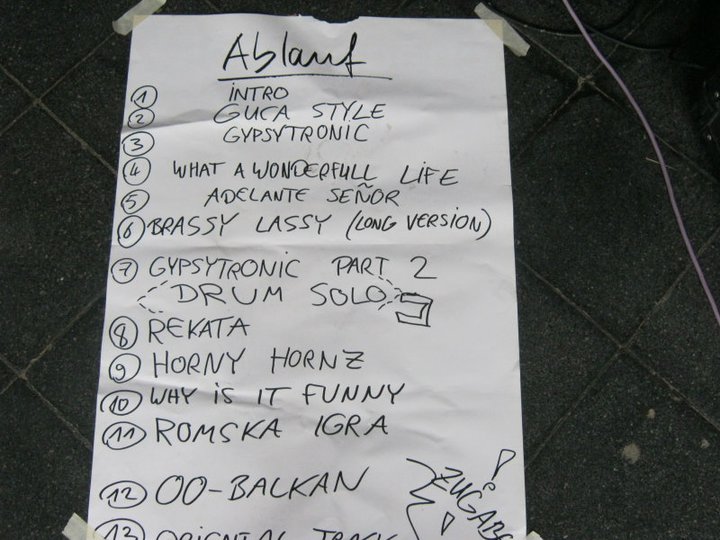 Ablauf
1 INTRO
2 GUCA STYLE
3 GYPSYTRONIC
4 WHAT A WONDERFULL LIFE
5 ADELANTE SEÑOR
6 BRASSY LASSY (LONG VERSION)
7 GYPSYTRONIC PART 2
DRUM SOLO
8 REKATA
9 HORNY HORNZ
10 WHY IS IT FUNNY
11 ROMSKA IGRA
12 OO-BALKAN
ZUGABE
13 ORIENTAL TRACK